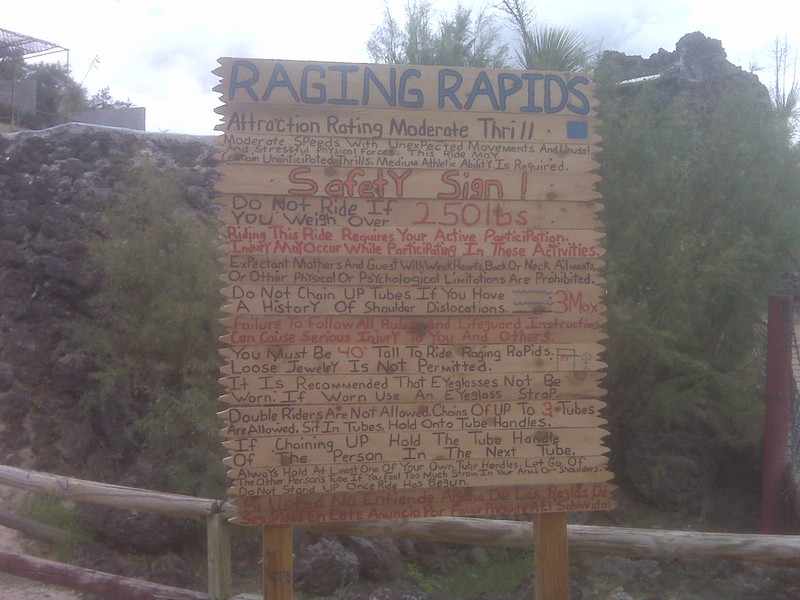 RAGING RAPIDS
Attraction Rating Moderate Thrill
Moderate Speeds With Unexpected Movements And Unusal
And Stressful Physical Forces. This Ride May
Contain Unanticipated Thrills. Medium Athletic Ability Is Required.
Safety Sign!
Do Not Ride If
You Weigh Over 250lbs
Riding This Ride Requires Your Active Participation.
Injury May Occur While Participating In These Activities.
Expectant Mothers And Guest With Weak Hearts, Back Or Neck Ailments,
Or Other Physical Or Psychological Limitations Are Prohibited.
Do Not Chain Up Tubes If You Have
A History Of Shoulder Dislocations. 3 Max
Failure To Follow All Rules And Lifeguard Instructions
Can Cause Serious Injury To You And Others.
You Must Be 40" Tall To Ride Raging Rapids.
Loose Jewelry Is Not Permitted.
It Is Recommended That Eyeglasses Not Be
Worn. If Worn Use An Eyeglass Strap
Double Riders Are Not Allowed. Chains Of Up To 3 Tubes
Are Allowed. Sit In Tubes, Hold Onto Tube Handles.
If Chaining Up Hold The Tube Handle
Of The Person In The Next Tube.
Always Hold At Least One Of Your Own Tube Handles. Let Go Of
The Other Person's Tube If You Feel Too Much Strain In Your Arms Or Shoulders.
Do Not Stand Up Once Ride Has Begun.
Si Usted No Entiende Alguna De Las Reglas De
Seguridad En Este Anuncio Por Favor El Salvavidas